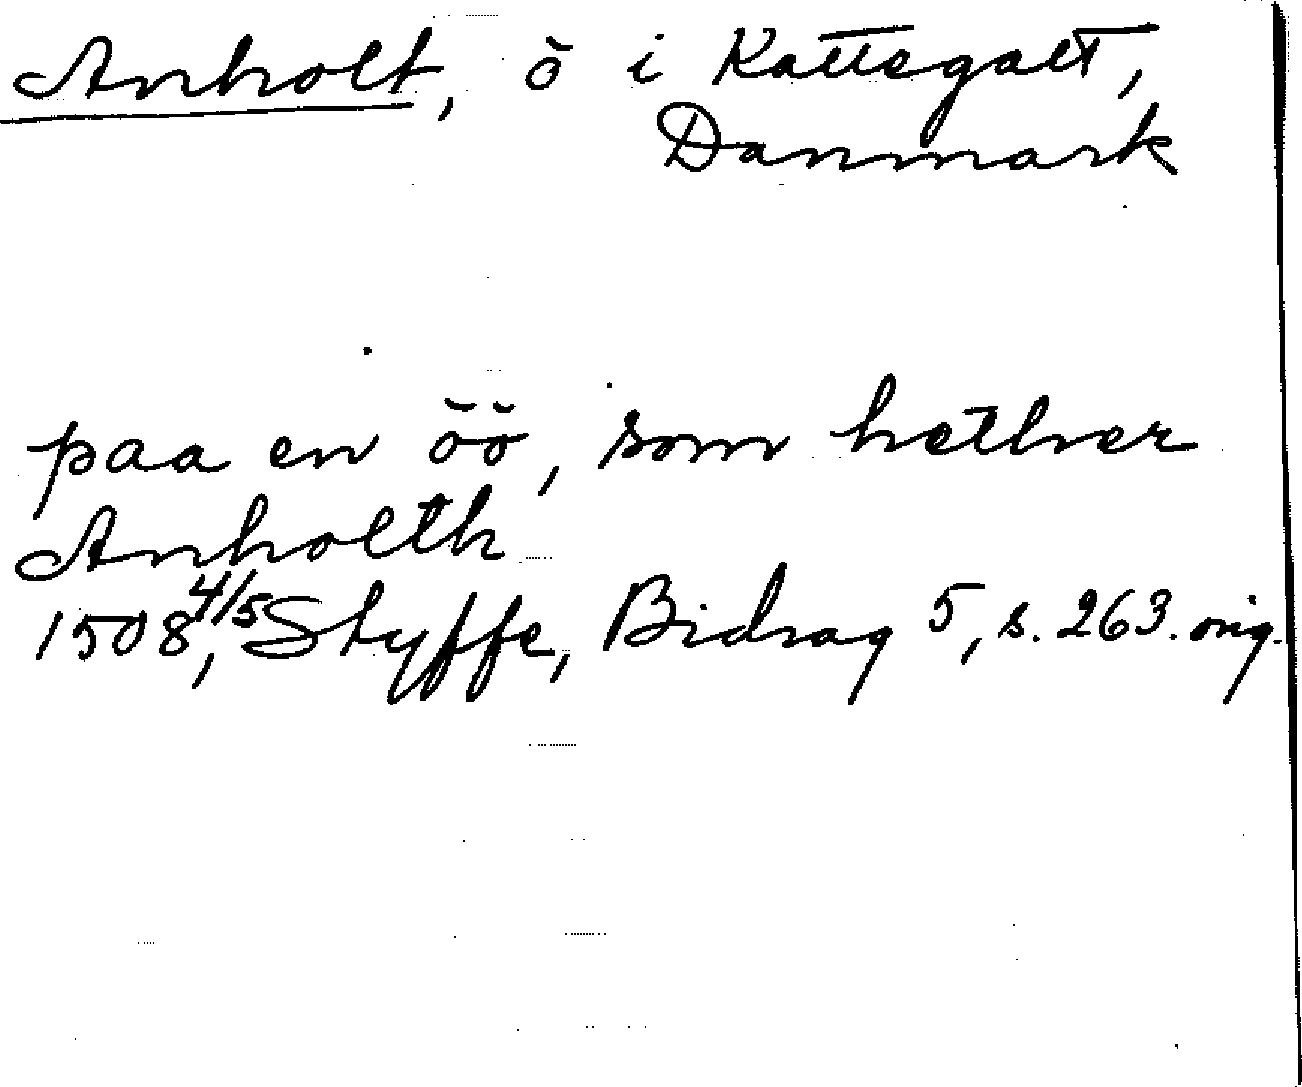 Anholt, ö i Kattegatt,
Danmark
paa en öö, som hether
Anholth
1508 4/5, Styffe, Bidrag 5, s. 263. orig.